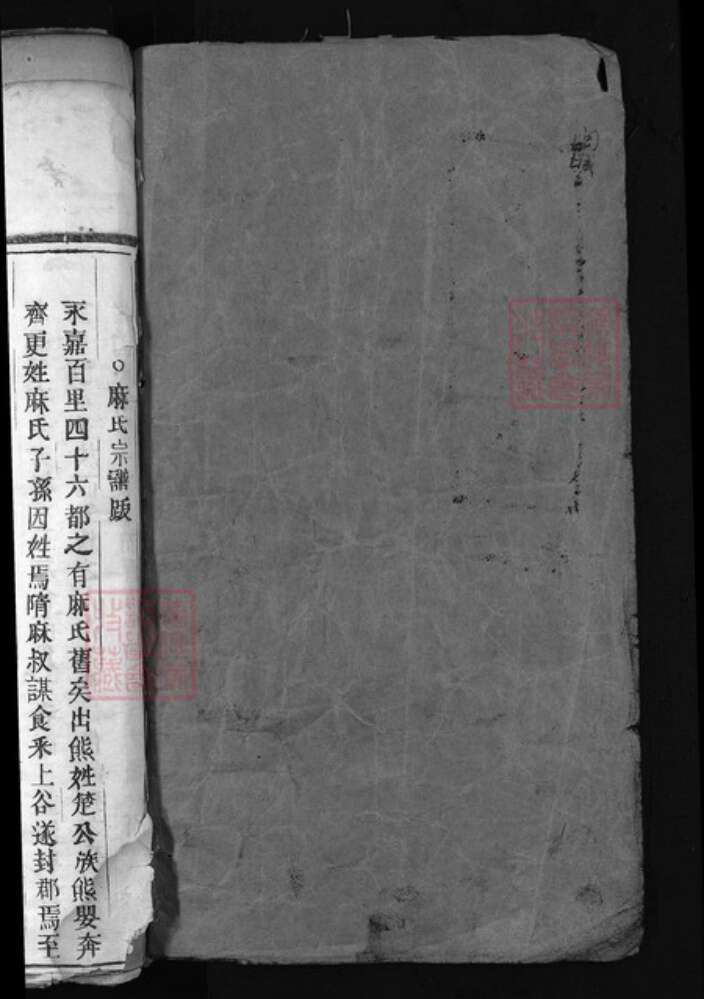 ○麻氏宗譜跋
永嘉百里四十六都之有麻氏舊矣出熊姓楚公族熊嬰奔
齊更姓麻氏子孫因姓焉隋麻叔謀食釆上谷遂封郡焉至